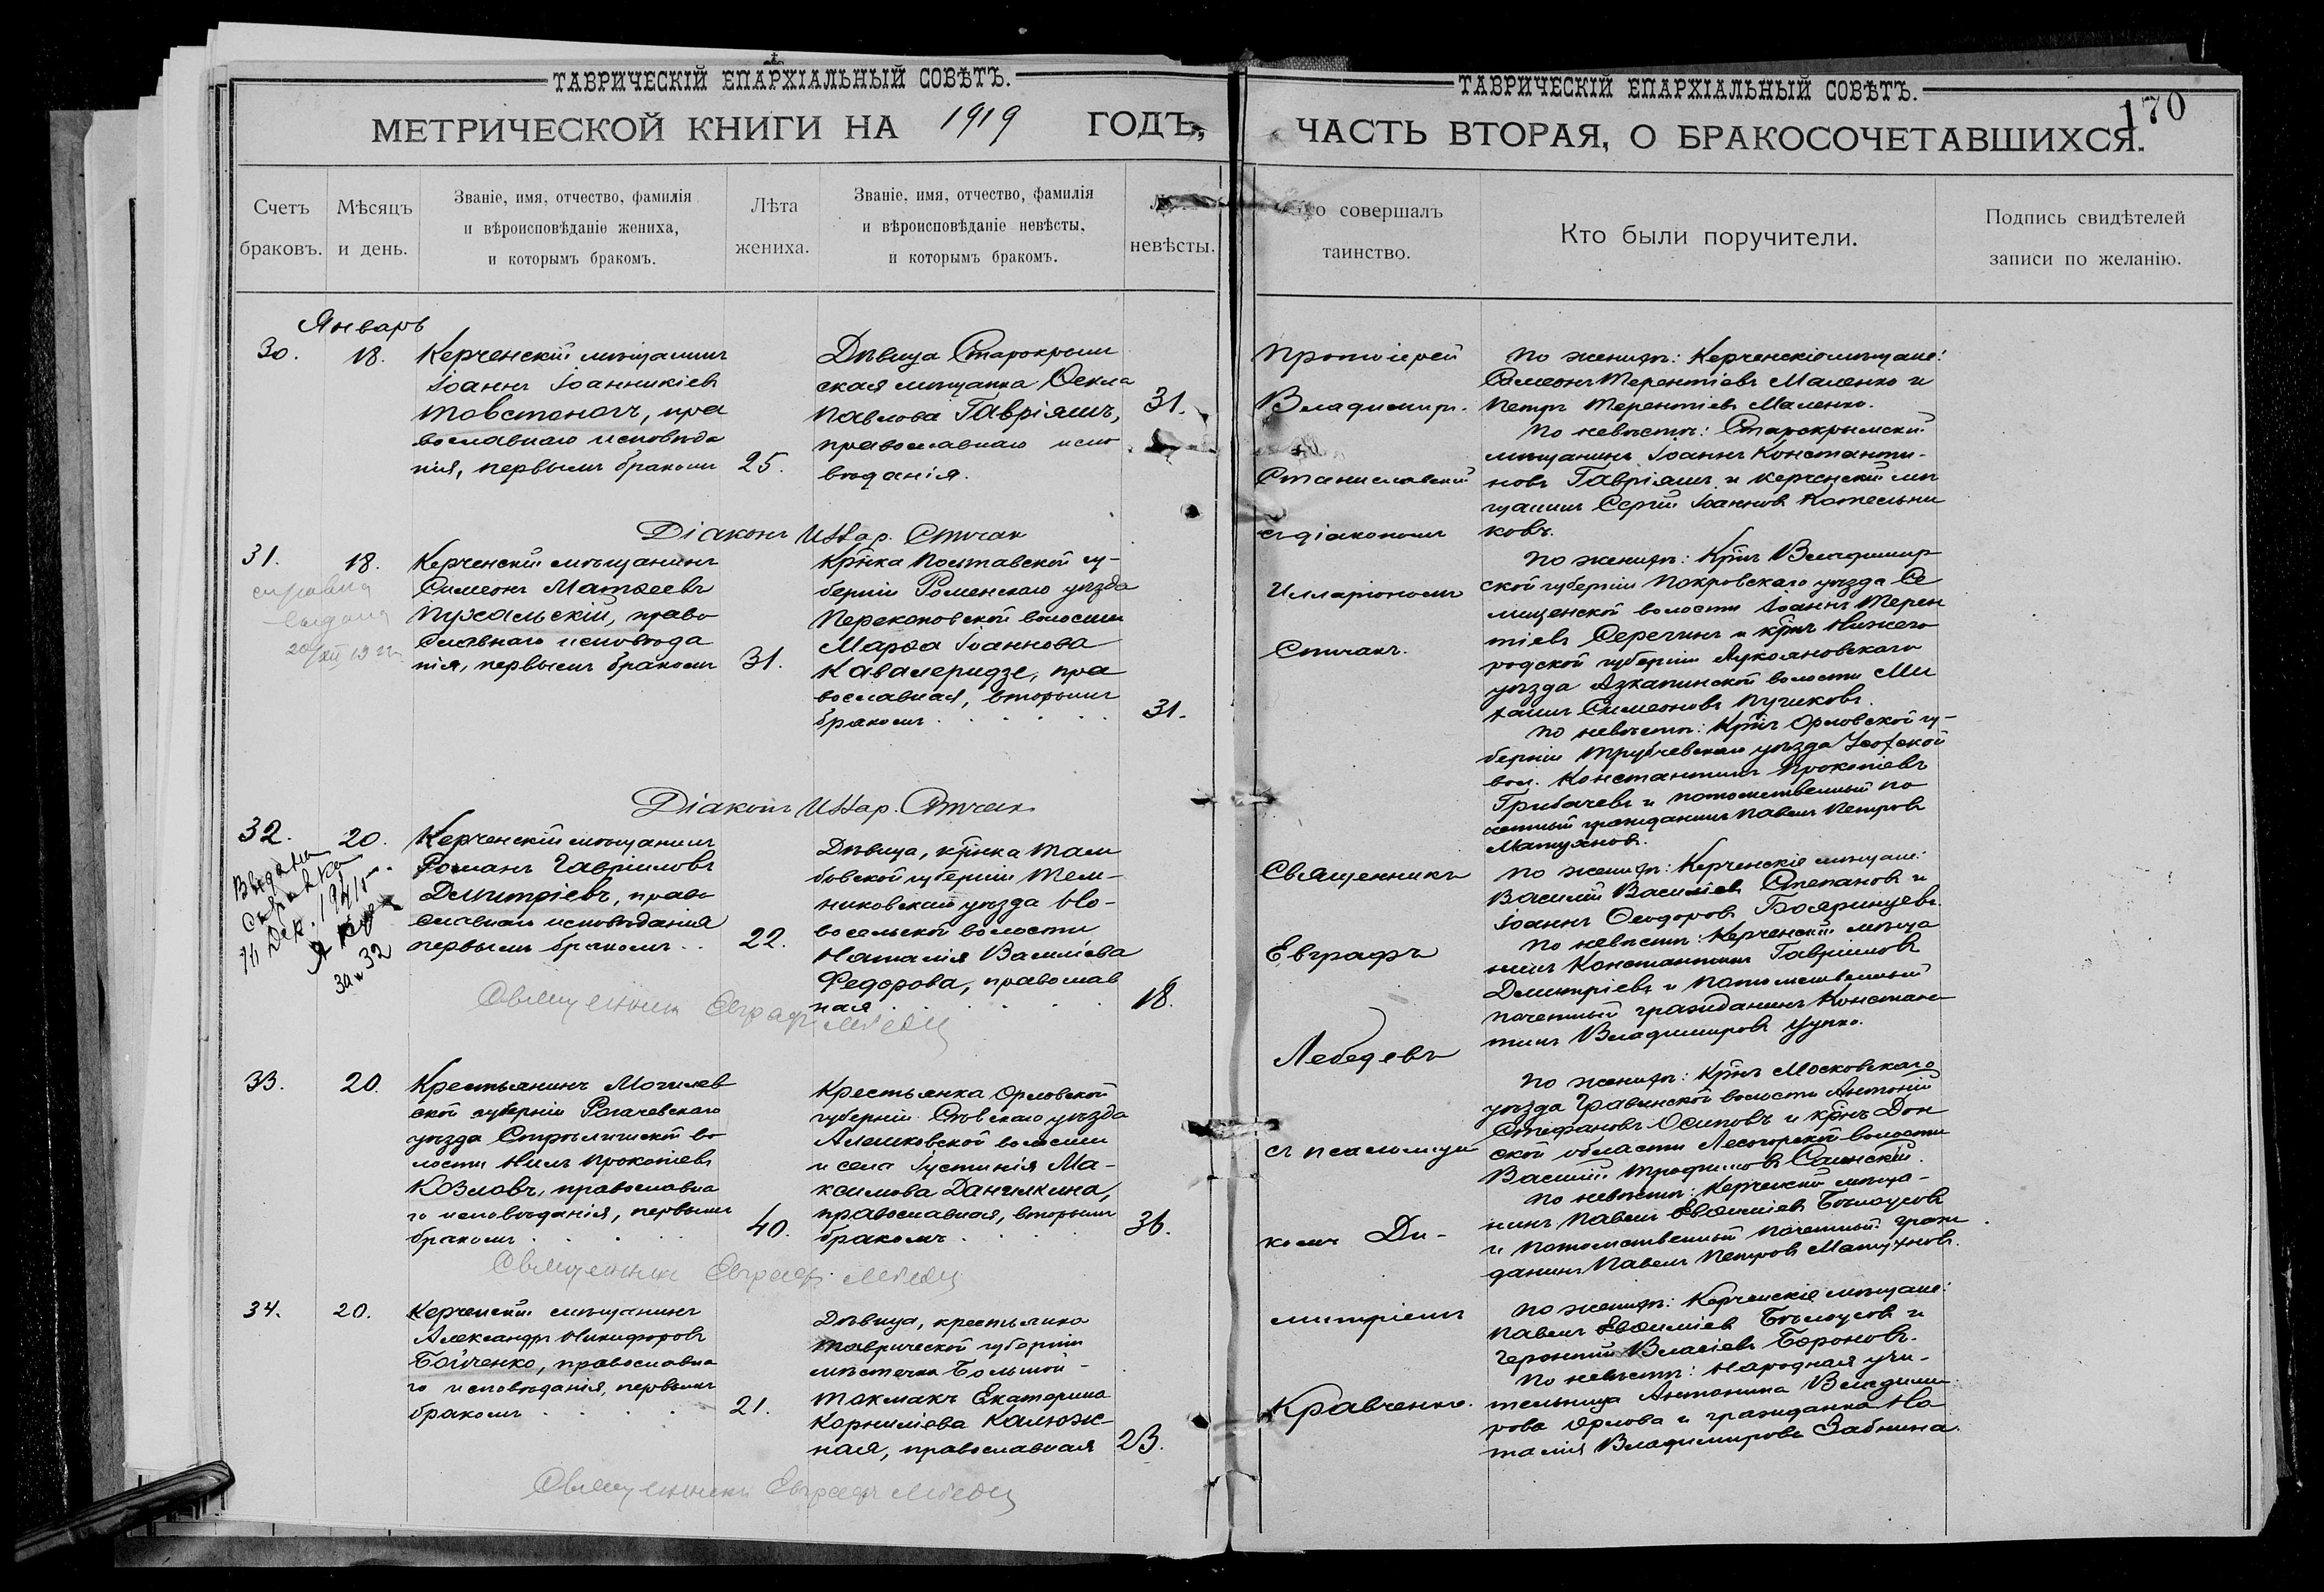 ТАВРИЧЕСКІЙ ЕПАРХІАЛЬНЫЙ СОВѢТЪ.
МЕТРИЧЕСКОЙ КНИГИ НА 1919 ГОДЪ,
Счетъ браковъ.
Мѣсяцъ и день.
Званіе, имя, отчество, фамилія
и вѣроисповѣданіе жениха,
и которымъ бракомъ.
Лѣта
жениха.
Званіе, имя, отчество, фамилія
и вѣроисповѣданіе невѣсты,
и которымъ бракомъ.
невѣсты.
Январь
30.
18.
Керченскій мѣщанинъ
Іоаннъ Іоанникіевъ
Товстоногъ, пра
вославнаго исповѣда
нія, первымъ бракомъ
25.
Дѣвица Старокрым
ская мѣщанка Ѳекла
Павлова Гавріяшъ,
православнаго испо
вѣданія.
31.
Діаконъ Иллар. Стичан
31.
18.
справка
выдана
Керченскій мѣщанинъ
Симеонъ Матѳеевъ
Пухальскій, право
славнаго исповѣда
нія, первымъ бракомъ
31.
Кр҃нка Полтавской гу-
берніи Роменскаго уѣзда
Перекоповской волости
Марѳа Іоаннова
Кавалеридзе, пра
вославная, вторымъ
бракомъ
31.
Діаконъ Иллар. Стичан
32.
20.
Выдана
справка
Дек.
за № 32
Керченскій мѣщанинъ
Романъ Гавріиловъ
Димитріевъ, право
славнаго исповѣданія
первымъ бракомъ
22.
Дѣвица, кр҃нка Там
бовской губерніи Тем-
никовскаго уѣзда Но-
восельской волости
Наталія Василіева
Федорова, православ
ная
18.
Священникъ Евграфъ Лебедев
33.
20.
Крестьянинъ Могилев
ской губерніи Рогачевскаго
уѣзда во
лости Нилъ Прокопіевъ
Козловъ, православна
го исповѣданія, первымъ
бракомъ
40.
Крестьянка Орловской
губерніи Сѣвскаго уѣзда
Алешковской волости
и села Іустинія Ма-
ксимова Данилкина,
православная, вторымъ
бракомъ
36.
Священникъ Евграфъ Лебедев
34.
20.
Керченскій мѣщанинъ
Александръ Никифоровъ
Бойченко, православна
го исповѣданія, первымъ
бракомъ
21.
Дѣвица, крестьянка
Таврической губерніи
мѣстечка Большой-
Токмакъ Екатерина
Корниліева Калюж
ная, православная
23.
Священникъ Евграфъ Лебедев
ТАВРИЧЕСКІЙ ЕПАРХІАЛЬНЫЙ СОВѢТЪ.
170
ЧАСТЬ ВТОРАЯ, О БРАКОСОЧЕТАВШИХСЯ.
совершалъ
таинство.
Кто были поручители.
Подпись свидѣтелей
записи по желанію.
Протоіерей
Владимиръ
Станиславскій
съ діакономъ
Илларіономъ
Стичанъ.
По женихѣ: Керченскіе мѣщане:
Симеонъ Терентіевъ Маленко и
Петръ Терентіевъ Маленко.
По невѣстѣ: Старокрымскій
мѣщанинъ Іоаннъ Константи-
новъ Гавріяшъ и Керченскій мѣ
щанинъ Сергій Іоанновъ Котельни
ковъ.
По женихѣ: Кр҃нъ Владимир
ской губерніи Покровскаго уѣзда
волости Іоаннъ Терен
тіевъ Серегинъ и кр҃нъ Нижего
родской губерніи Лукояновскаго
уѣзда Азрапинской волости Ми
хаилъ Симеоновъ Пучковъ.
По невѣстѣ: Кр҃нъ Орловской гу-
берніи Трубчевскаго уѣзда
вол. Константинъ Прокопіевъ
Грибачевъ и потомственный по
четный гражданинъ Павелъ Петровъ
Священникъ
Евграфъ
Лебедевъ
съ псаломщи
комъ Ди-
митріемъ
Кравченко.
По женихѣ: Керченскіе мѣщане:
Василій Василіевъ Степановъ и
Іоаннъ Ѳеодоровъ Бояринцевъ.
По невѣстѣ: Керченскій мѣща
нинъ Константинъ Гавріиловъ
Димитріевъ и потомственный
почетный гражданинъ Констан
тинъ Владимировъ Цупко.
По женихѣ: Кр҃нъ Московскаго
уѣзда волости Антоній
Стефановъ Осиповъ и кр҃нъ Дон
ской области волости
Василій Трофимовъ
По невѣстѣ: Керченскій мѣща-
нинъ Павелъ Евѳиміевъ Бѣлоусовъ
и потомственный почетный граж
данинъ Павелъ Петровъ
По женихѣ: Керченскіе мѣщане:
Павелъ Евѳиміевъ Бѣлоусовъ и
Геронтій Власіевъ Бороновъ.
По невѣстѣ: Народная учи-
тельница Антонина Владими
рова Орлова и гражданка На
талія Владимирова Забнина.